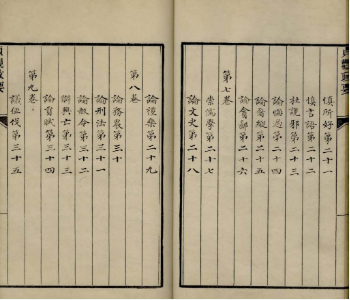 慎所好第二十一
慎言語第二十二
杜讒邪第二十三
論悔過第二十四
論奢縱第二十五
論貪鄙第二十六
第七卷
崇儒學第二十七
論文史第二十八
論禮樂第二十九
第八卷
論務農第三十
論刑法第三十一
論赦令第三十二
辯興亡第三十三
論貢賦第三十四
第九卷
議征伐第三十五